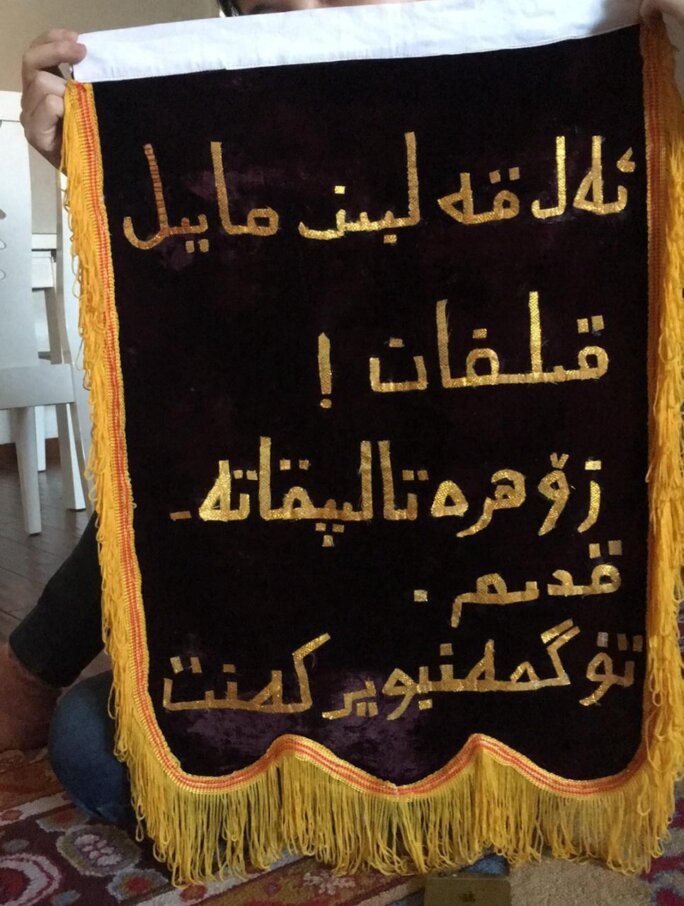 ئەل قەلبىنى مايىل
قىلغان !
زۆھرە تالىپقا تە-
قدىم .
تۈگمەنبويى كەنت